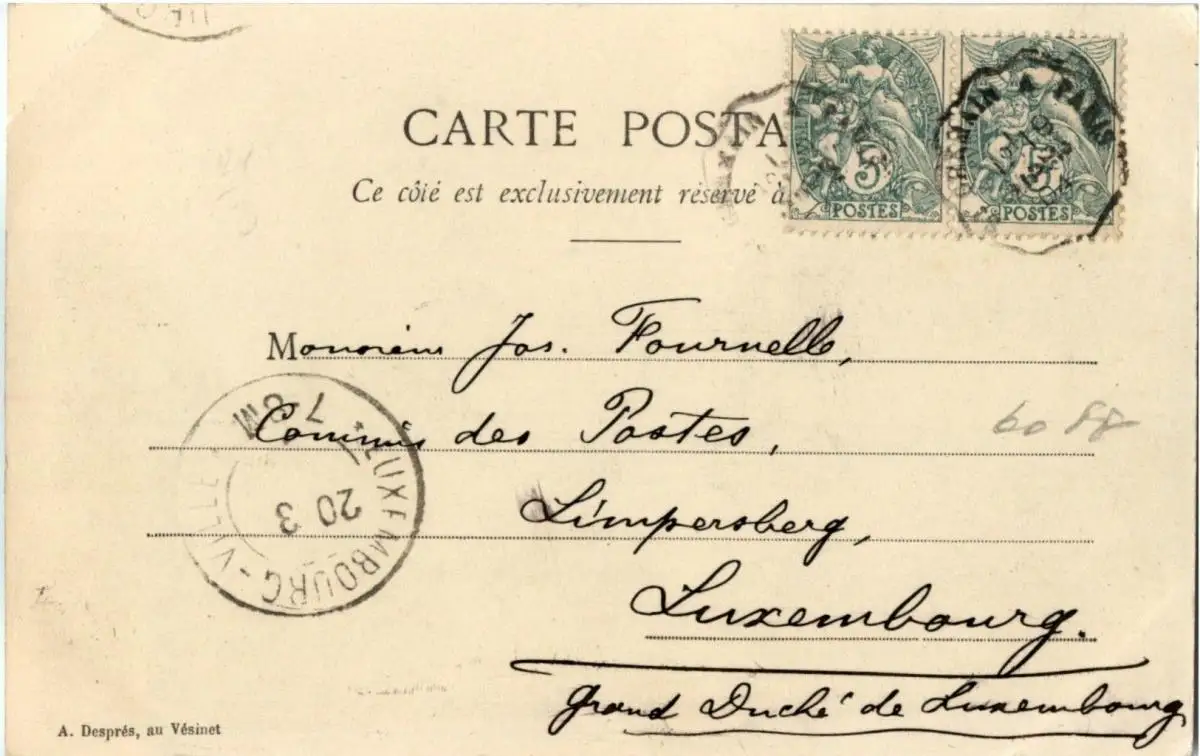 CARTE POSTA
Ce côté est exclusivement réservé à
5
POSTES
5
POSTES
GERMAIN A PARIS
Monsieur Jos. Fournelle,
Commis des Postes,
Limpersberg,
Luxembourg.
Grand Duché de Luxembourg
60 88
LUXEMBOURG-VILLE
7-8M
20 3
A. Després, au Vésinet